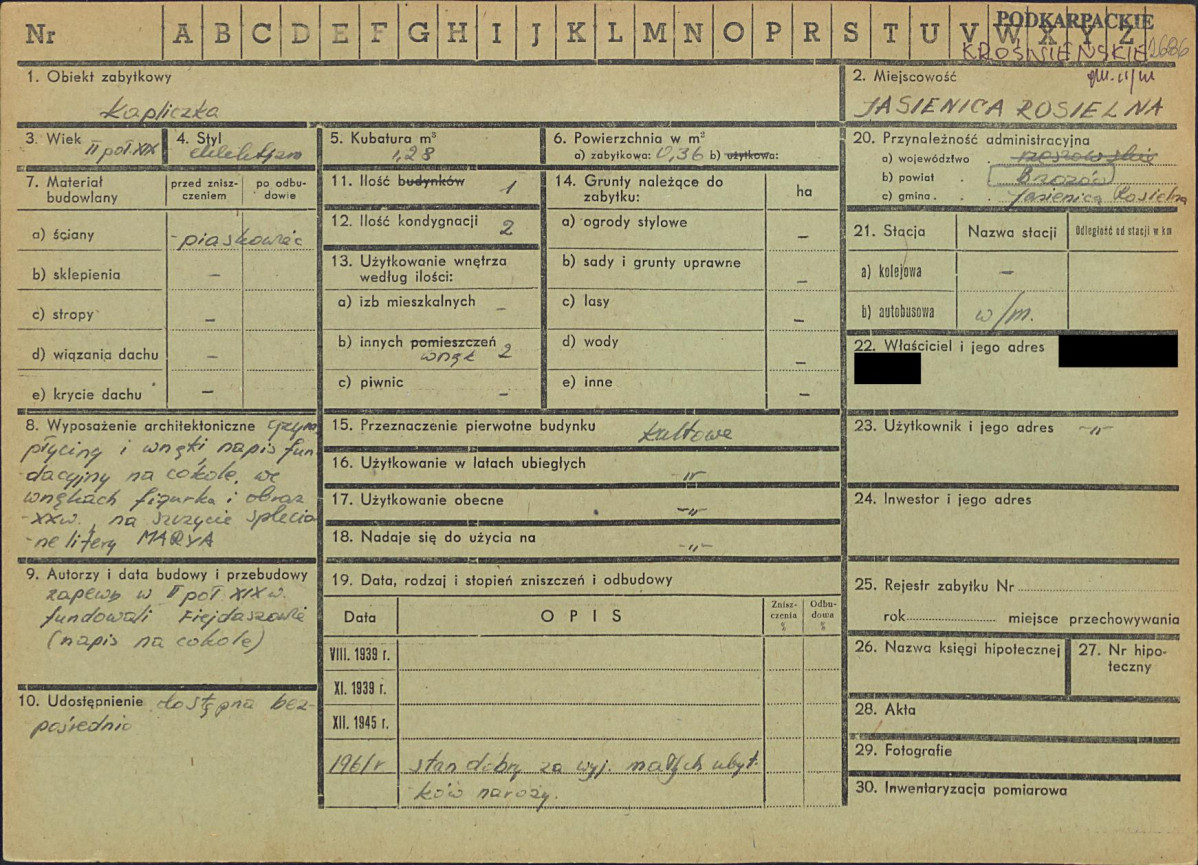 Nr A B C D E F G H I J K L M N O P R S T U V W X Y Z
PODKARPACKIE
KROŚNIEŃSKIE 2686
1. Obiekt zabytkowy
kapliczka
2. Miejscowość
JASIENICA ROSIELNA
3. Wiek II poł XIX
4. Styl
5. Kubatura m³
1,28
6. Powierzchnia w m²
a) zabytkowa: 0,36 b) użytkowa:
20. Przynależność administracyjna
a) województwo . rzeszowskie
b) powiat . Brzozów
c) gmina . Jasienica Rosielna
7. Materiał budowlany
przed zniszczeniem
po odbudowie
a) ściany - piaskowiec
b) sklepienia –
c) stropy –
d) wiązania dachu –
e) krycie dachu –
11. Ilość budynków 1
12. Ilość kondygnacji 2
13. Użytkowanie wnętrza
według ilości:
a) izb mieszkalnych –
b) innych pomieszczeń
wnęk 2
c) piwnic –
14. Grunty należące do
zabytku:
ha
a) ogrody stylowe –
b) sady i grunty uprawne –
c) lasy –
d) wody –
e) inne –
21. Stacja Nazwa stacji Odległość od stacji w km
a) kolejowa –
b) autobusowa w/m.
22. Właściciel i jego adres
8. Wyposażenie architektoniczne
płyciny i wnęki, napis fun-
dacyjny na cokole, we
wnękach figurka i obraz
XXw., na szczycie splecio
-ne litery MARYA
15. Przeznaczenie pierwotne budynku kultowe
16. Użytkowanie w latach ubiegłych -"-
17. Użytkowanie obecne -"-
18. Nadaje się do użycia na -"-
23. Użytkownik i jego adres -"-
24. Inwestor i jego adres
9. Autorzy i data budowy i przebudowy
w II poł XIX w.
fundowali
(napis na cokole)
19. Data, rodzaj i stopień zniszczeń i odbudowy
Data OPIS Zniszczenia % Odbudowa %
VIII. 1939 r.
XI. 1939 r.
XII. 1945 r.
1961 r stan dobry za wyj. małych ubyt-
ków naroży.
25. Rejestr zabytku Nr
rok miejsce przechowywania
26. Nazwa księgi hipotecznej
27. Nr hipoteczny
10. Udostępnienie dostępna bez-
pośrednio
28. Akta
29. Fotografie
30. Inwentaryzacja pomiarowa